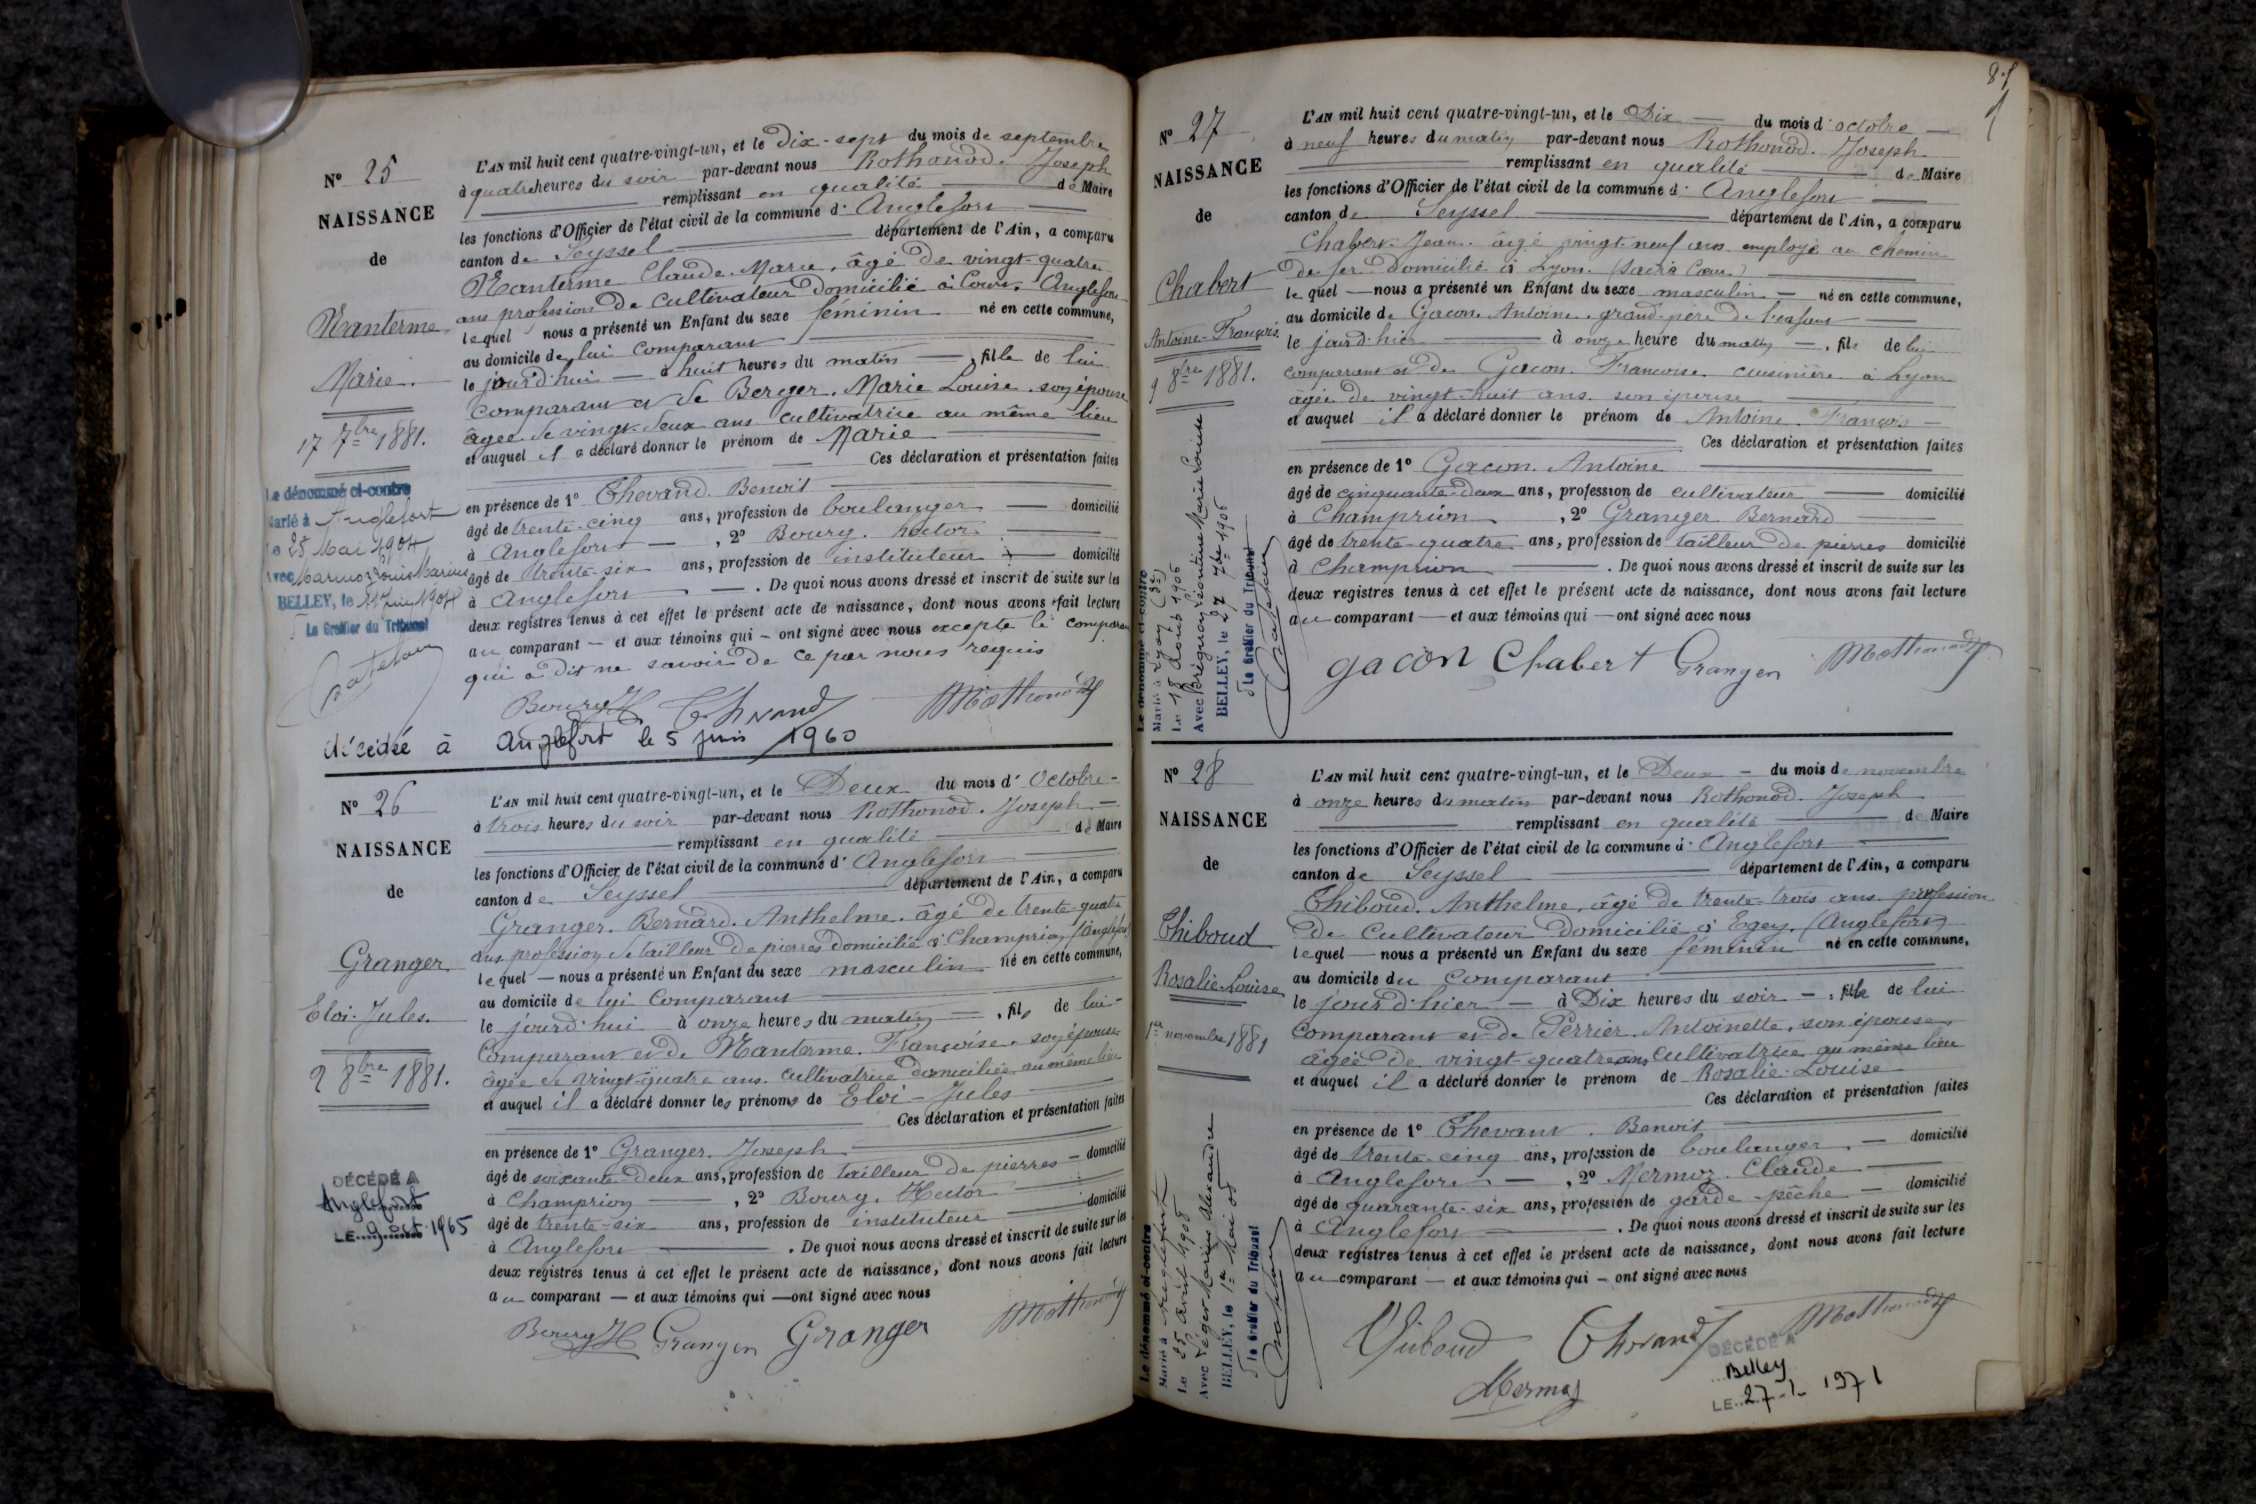 N° 25
NAISSANCE
de
Nanterme
Marie.
17 7bre 1881.
Le dénommé ci-contre
Marié à Anglefort
Le 28 Mai 1904
Avec Marius
BELLEY, le 1904
Le Greffier du Tribunal
L'AN mil huit cent quatre-vingt-un, et le Dix-sept du mois de septembre
à quatre heures du soir par-devant nous Rothonod. Joseph
remplissant en qualité de Maire
les fonctions d'Officier de l'état civil de la commune d'Anglefort
canton de Seyssel département de l'Ain, a comparu
Nanterme Claude-Marie, âgé de vingt-quatre
ans profession de cultivateur domicilié à Anglefort
lequel nous a présenté un Enfant du sexe féminin né en cette commune,
au domicile de lui comparant
le jourd'hui à huit heures du matin, fille de lui
comparant et de Berger. Marie Louise. son épouse
âgée de vingt-deux ans cultivatrice au même lieu
et auquel il a déclaré donner le prénom de Marie
Ces déclaration et présentation faites
en présence de 1° Chevand. Benoit
âgé de trente-cinq ans, profession de boulanger domicilié
à Anglefort, 2° Boury. hector
âgé de trente-six ans, profession de instituteur domicilié
à Anglefort. De quoi nous avons dressé et inscrit de suite sur les
deux registres tenus à cet effet le présent acte de naissance, dont nous avons fait lecture
au comparant et aux témoins qui ont signé avec nous excepté le comparant
qui a dit ne savoir de ce par nous requis
Boury H Chevand Rothonod
décédée à Anglefort le 5 juin 1960
N° 26
NAISSANCE
de
Granger
Eloi-Jules.
2 8bre 1881.
DÉCÉDÉ A
Anglefort
LE 9 oct. 1965
L'AN mil huit cent quatre-vingt-un, et le Deux du mois d'Octobre
à trois heures du soir par-devant nous Rothonod. Joseph
remplissant en qualité de Maire
les fonctions d'Officier de l'état civil de la commune d'Anglefort
canton de Seyssel département de l'Ain, a comparu
Granger. Bernard. Anthelme. âgé de trente-quatre
ans profession de tailleur de pierres domicilié à Champrion (Anglefort)
lequel nous a présenté un Enfant du sexe masculin né en cette commune,
au domicile de lui comparant
le jourd'hui à onze heures du matin, fils de lui
comparant et de Nanterme. Françoise. son épouse
âgée de vingt-quatre ans. cultivatrice domiciliée au même lieu
et auquel il a déclaré donner les prénoms de Eloi-Jules
Ces déclaration et présentation faites
en présence de 1° Granger. Joseph
âgé de soixante-deux ans, profession de tailleur de pierres domicilié
à Champrion, 2° Boury. Hector
âgé de trente-six ans, profession de instituteur domicilié
à Anglefort. De quoi nous avons dressé et inscrit de suite sur les
deux registres tenus à cet effet le présent acte de naissance, dont nous avons fait lecture
au comparant et aux témoins qui ont signé avec nous
Boury H Granger Granger Rothonod
N° 27
NAISSANCE
de
Chabert
Antoine-François.
9 8bre 1881.
Le dénommé ci-contre
Marié à Lyon (3e)
Le 18 Août 1906
Avec Marie Louise
BELLEY, le 27 7bre 1906
Le Greffier du Tribunal
L'AN mil huit cent quatre-vingt-un, et le Dix du mois d'octobre
à neuf heures du matin par-devant nous Rothonod. Joseph
remplissant en qualité de Maire
les fonctions d'Officier de l'état civil de la commune d'Anglefort
canton de Seyssel département de l'Ain, a comparu
Chabert. Jean. âgé vingt-neuf ans employé au chemin
de fer domicilié à Lyon. (Sacré Cœur)
lequel nous a présenté un Enfant du sexe masculin né en cette commune,
au domicile de Gacon. Antoine. grand-père de l'enfant
le jourd'hier à onze heure du matin, fils de lui
comparant et de Gacon. Francoise. cuisinière à Lyon
âgée de vingt-huit ans. son épouse
et auquel il a déclaré donner le prénom de Antoine. François
Ces déclaration et présentation faites
en présence de 1° Gacon. Antoine
âgé de cinquante-deux ans, profession de cultivateur domicilié
à Champrion, 2° Granger Bernard
âgé de trente-quatre ans, profession de tailleur de pierres domicilié
à Champrion. De quoi nous avons dressé et inscrit de suite sur les
deux registres tenus à cet effet le présent acte de naissance, dont nous avons fait lecture
au comparant et aux témoins qui ont signé avec nous
gacon Chabert Granger Rothonod
N° 28
NAISSANCE
de
Thiboud
Rosalie-Louise
1er novembre 1881
Le dénommé ci-contre
Marié à Anglefort
Le 25 avril 1908
Avec Léger Marius Alexandre
BELLEY, le 1er Mai 08
le Greffier du Tribunal
L'AN mil huit cent quatre-vingt-un, et le Deux du mois de novembre
à onze heures du matin par-devant nous Rothonod. Joseph
remplissant en qualité de Maire
les fonctions d'Officier de l'état civil de la commune d'Anglefort
canton de Seyssel département de l'Ain, a comparu
Thiboud. Anthelme, âgé de trente-trois ans profession
de Cultivateur domicilié à Egey. (Anglefort)
lequel nous a présenté un Enfant du sexe féminin né en cette commune,
au domicile du comparant
le jourd'hier à Dix heures du soir, fille de lui
comparant et de Perrier. Antoinette, son épouse,
âgée de vingt-quatre ans Cultivatrice au même lieu
et auquel il a déclaré donner le prénom de Rosalie-Louise
Ces déclaration et présentation faites
en présence de 1° Chevant. Benoit
âgé de trente-cinq ans, profession de boulanger domicilié
à Anglefort, 2° Mermoz. Claude
âgé de quarante-six ans, profession de garde-pêche domicilié
à Anglefort. De quoi nous avons dressé et inscrit de suite sur les
deux registres tenus à cet effet le présent acte de naissance, dont nous avons fait lecture
au comparant et aux témoins qui ont signé avec nous
Thiboud Chevand Rothonod
Mermoz
DÉCÉDÉ A
Belley
LE 27-1-1971